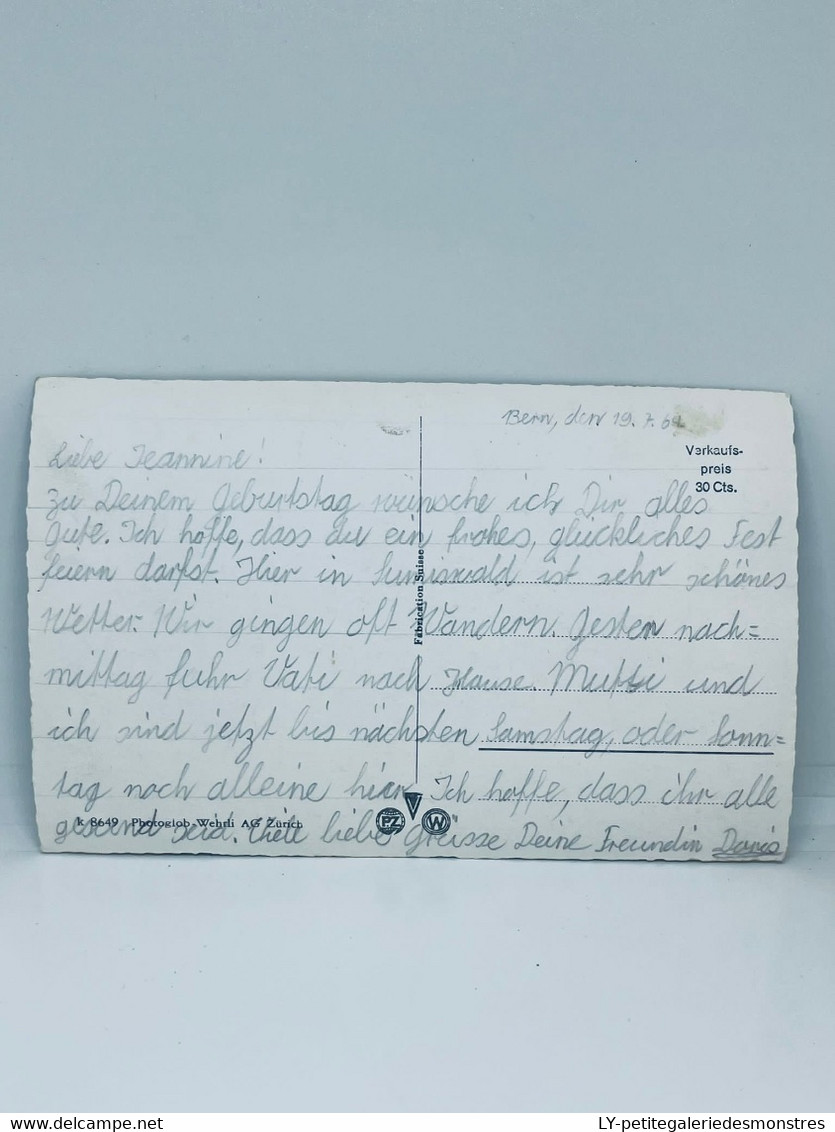 Bern, den 19. 7. 6
Verkaufs-
preis
30 Cts.
Liebe Jeannine!
Zu Deinem Geburtstag wünsche ich Dir alles
Gute. Ich hoffe, dass du ein frohes, glückliches Fest
feiern darfst. Hier in Sumiswald ist sehr schönes
Wetter. Wir gingen oft Wandern. Gestern nach=
mittag fuhr Vati nach Hause. Mutti und
ich sind jetzt bis nächsten Samstag, oder Sonn=
tag noch alleine hier. Ich hoffe, dass ihr alle
gesund seid. Viele liebe Grüsse Deine Freundin Doris
Fabrication Suisse
k 8649 Photoglob-Wehrli AG Zürich
PZ
W
LY-petitegaleriedesmonstres